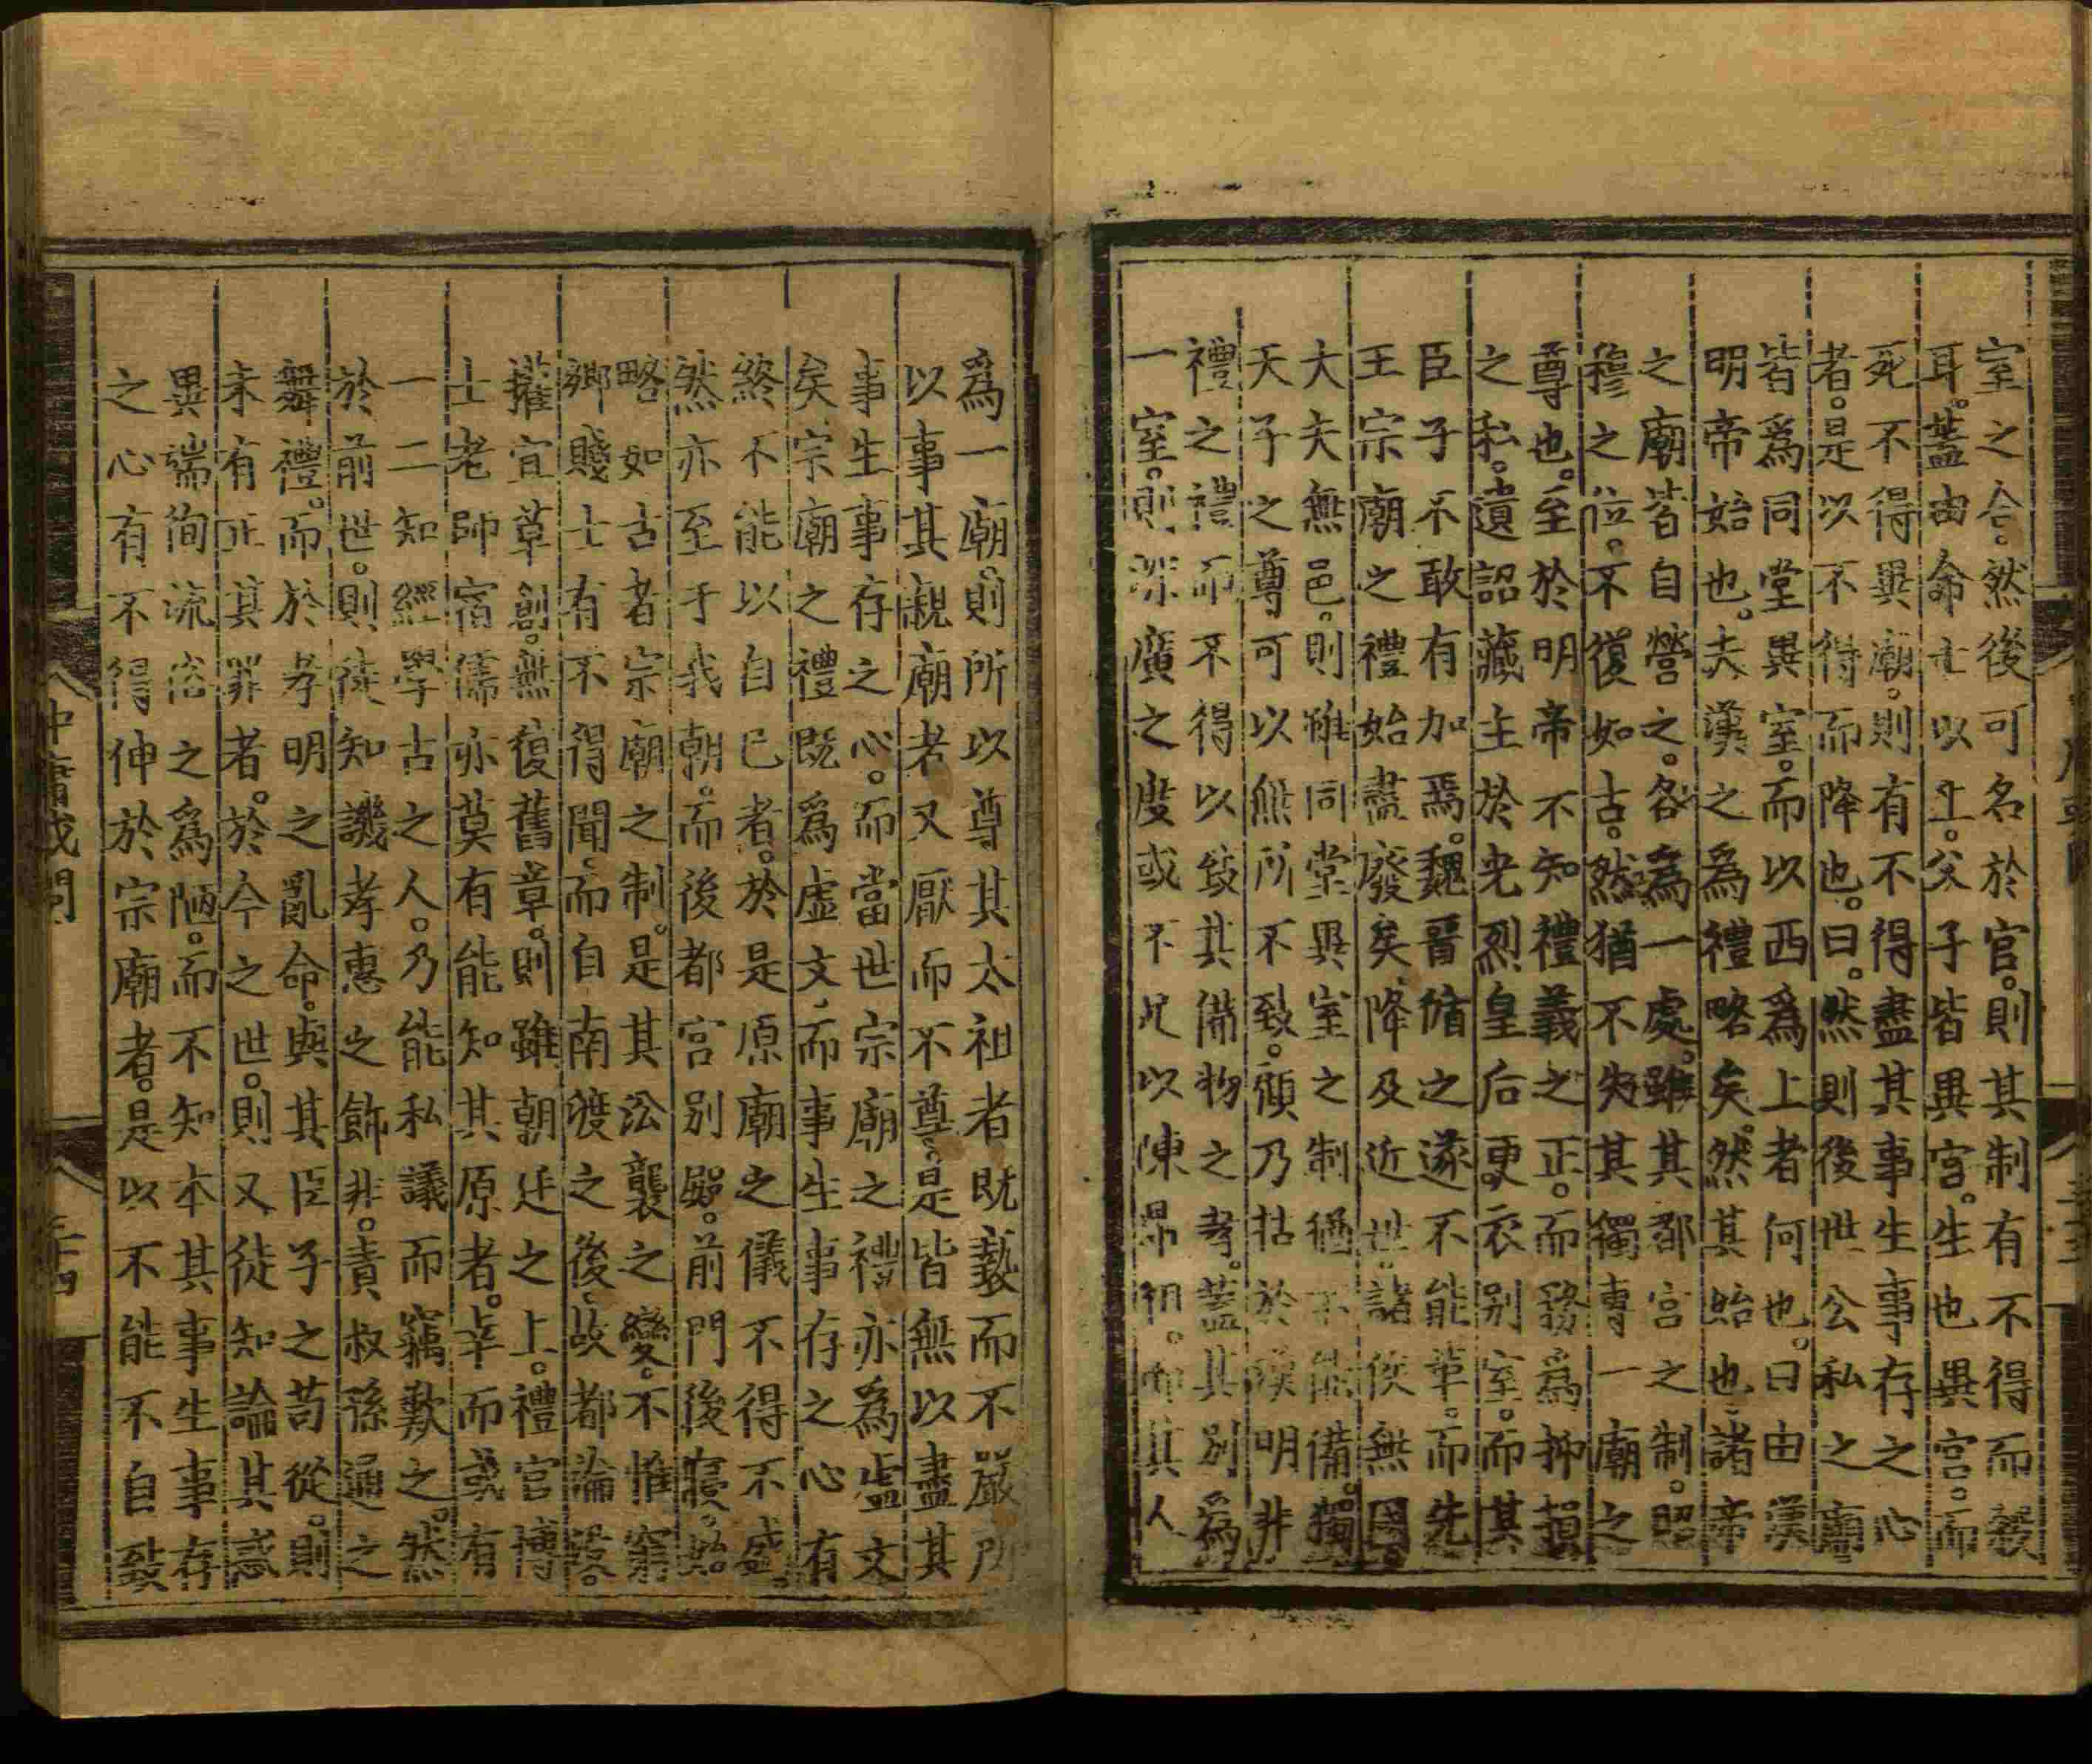 室之令。然後可名於官。則其制有不得而殺
耳。蓋由命士以上。父子皆異宮。生也異宮。而
死不得異廟。則有不得盡其事生事存之心
者。是以不得而降也。曰。然則後世公私之廟
皆爲同堂異室。而以西爲上者何也。曰由漢
明帝始也。夫漢之爲禮略矣。然其始也。諸帝
之廟皆自營之。各爲一處。雖其都宮之制。昭
穆之位。不復如古。然猶不失其獨專一廟之
尊也。至於明帝不知禮義之正。而務爲抑損
之私。遺詔藏主於光烈皇后更衣別室。而其
臣子不敢有加焉。魏晉循之遂不能革。而先
王宗廟之禮始盡廢矣。降及近世。諸侯無國。
大夫無邑。則惟同堂異室之制猶不能備。獨
天子之尊可以無所不致。顧乃梏於漢明非
禮之禮而不得以致其備物之孝。蓋其別爲
一室。則深廣之度或不足以陳鼎俎。而其
爲一廟。則所以尊其太祖者既褻而不嚴所
以事其親廟者又厭而不尊。是皆無以盡其
事生事存之心。而當世宗廟之禮亦爲虛文
矣宗廟之禮既爲虛文。而事生事存之心有
終不能以自已者。於是原廟之儀不得不盛。
然亦至于我朝。而後都宮別殿。前門後寢。始
略如古者宗廟之制。是其沿襲之變。不惟窮
鄉賤士有不得聞。而自南渡之後。故都淪沒。
權宜草創。無復舊章。則雖朝廷之上。禮官博
士老師宿儒亦莫有能知其原者。幸而或有
一二知經學古之人。乃能私議而竊歎之。然
於前世。則徒知譏孝惠之飾非。責叔孫通之
舞禮。而於孝明之亂命。與其臣子之苟從。則
未有正其罪者。於今之世。則又徒知論其惑
異端徇流俗之爲陋。而不知本其事生事存
之心有不得伸於宗廟者。是以不能不自致
中庸或問
三十四